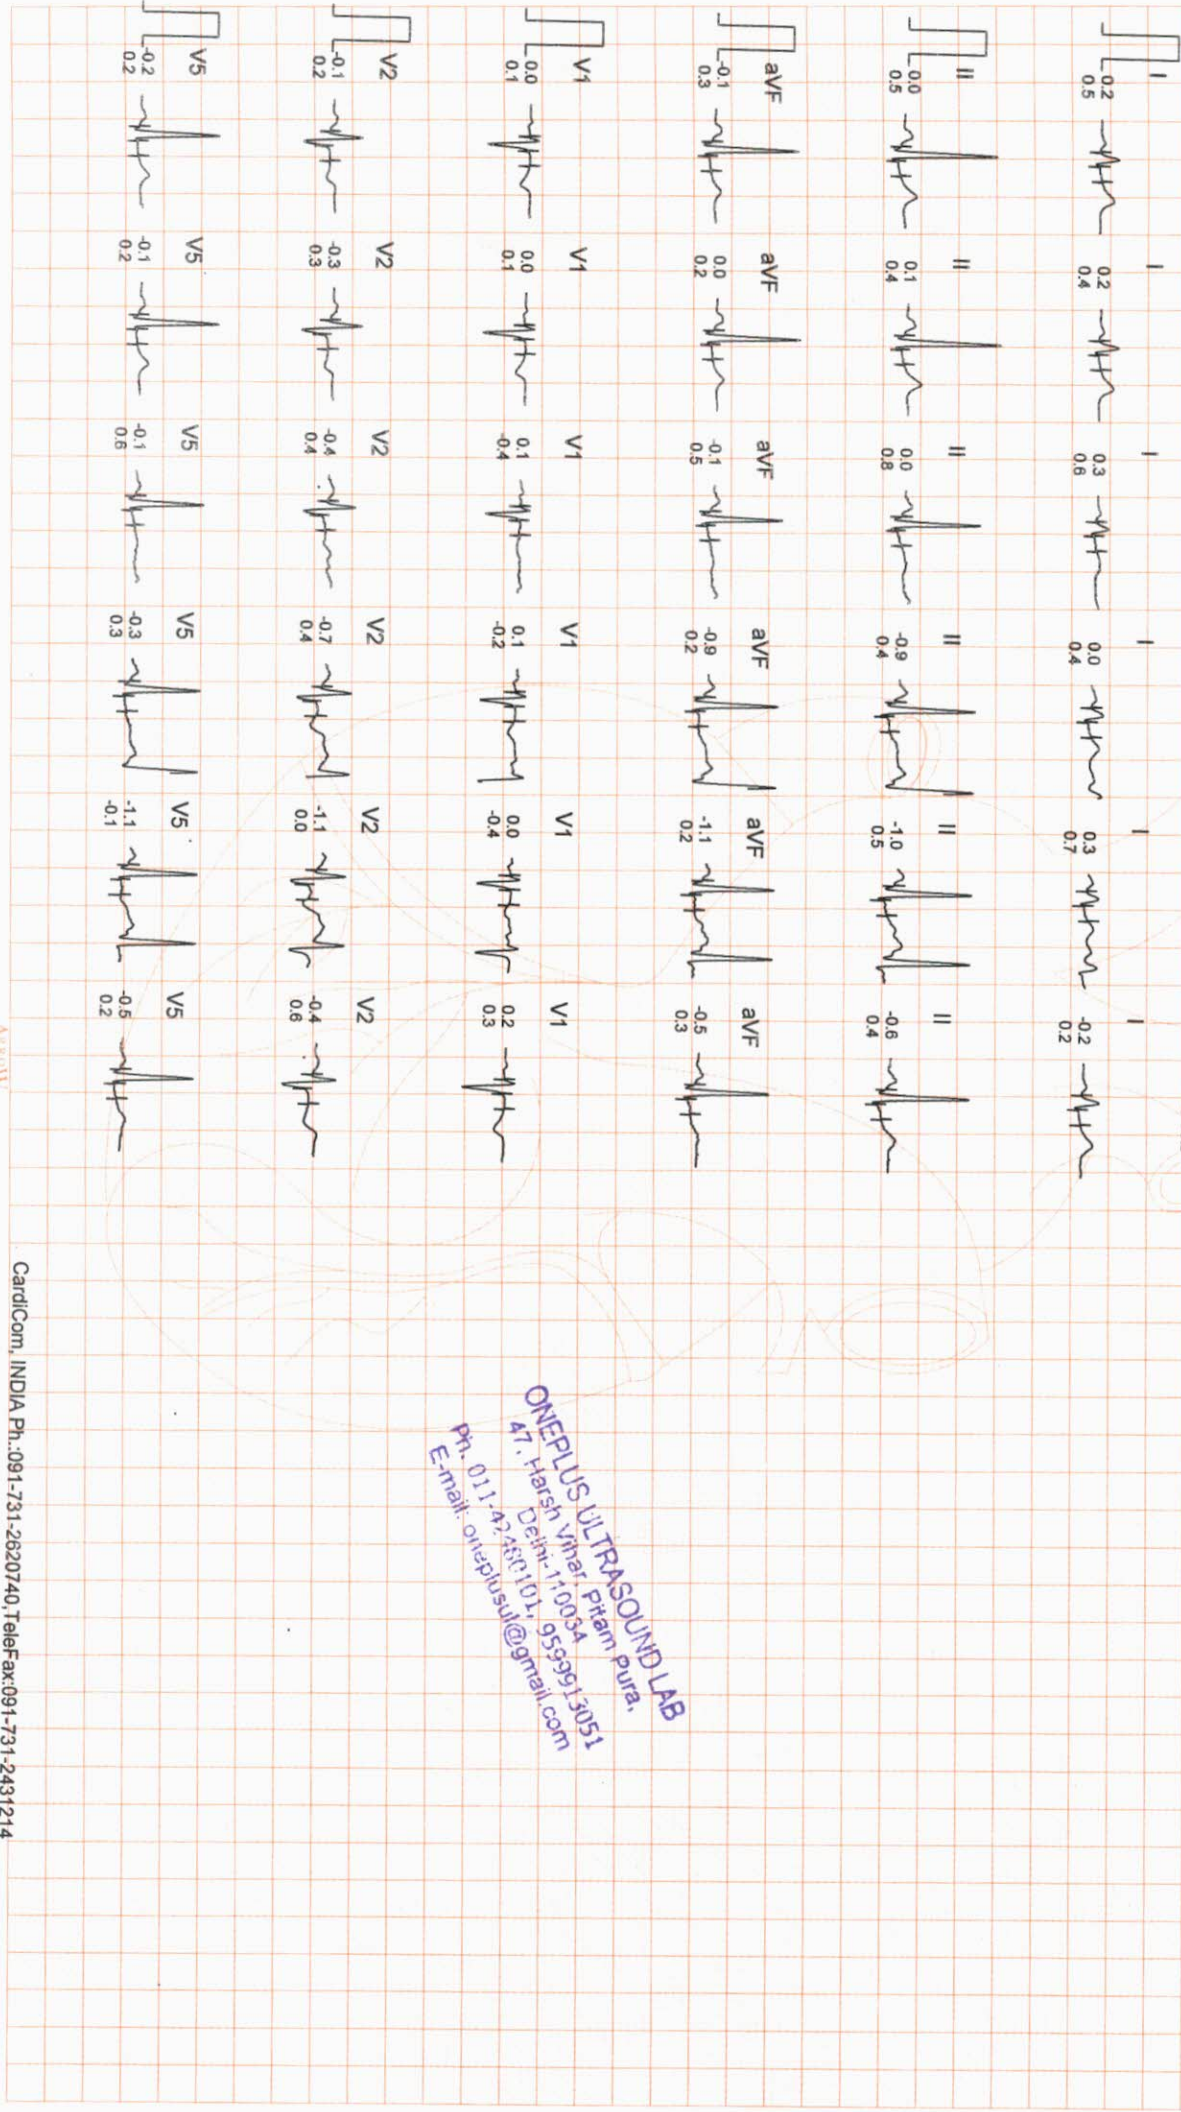 I
0.2
0.5
I
0.2
0.4
I
0.3
0.6
I
0.0
0.4
I
0.3
0.7
I
-0.2
0.2
II
0.0
0.5
II
0.1
0.4
II
0.0
0.8
II
-0.9
0.4
II
-1.0
0.5
II
-0.6
0.4
aVF
-0.1
0.3
aVF
0.0
0.2
aVF
-0.1
0.5
aVF
-0.9
0.2
aVF
-1.1
0.2
aVF
-0.5
0.3
V1
0.0
0.1
V1
0.0
0.1
V1
0.1
-0.4
V1
0.1
-0.2
V1
0.0
-0.4
V1
0.2
0.3
V2
-0.1
0.2
V2
-0.3
0.3
V2
-0.4
0.4
V2
-0.7
0.4
V2
-1.1
0.0
V2
-0.4
0.6
V5
-0.2
0.2
V5
-0.1
0.2
V5
-0.1
0.6
V5
-0.3
0.3
V5
-1.1
-0.1
V5
-0.5
0.2
ONEPLUS ULTRASOUND LAB
47, Harsh Vihar, Pitam Pura,
Delhi-110034
Ph. 011-42460101, 9599913051
E-mail: oneplusul@gmail.com
CardiCom, INDIA Ph.:091-731-2620740,TeleFax:091-731-2431214